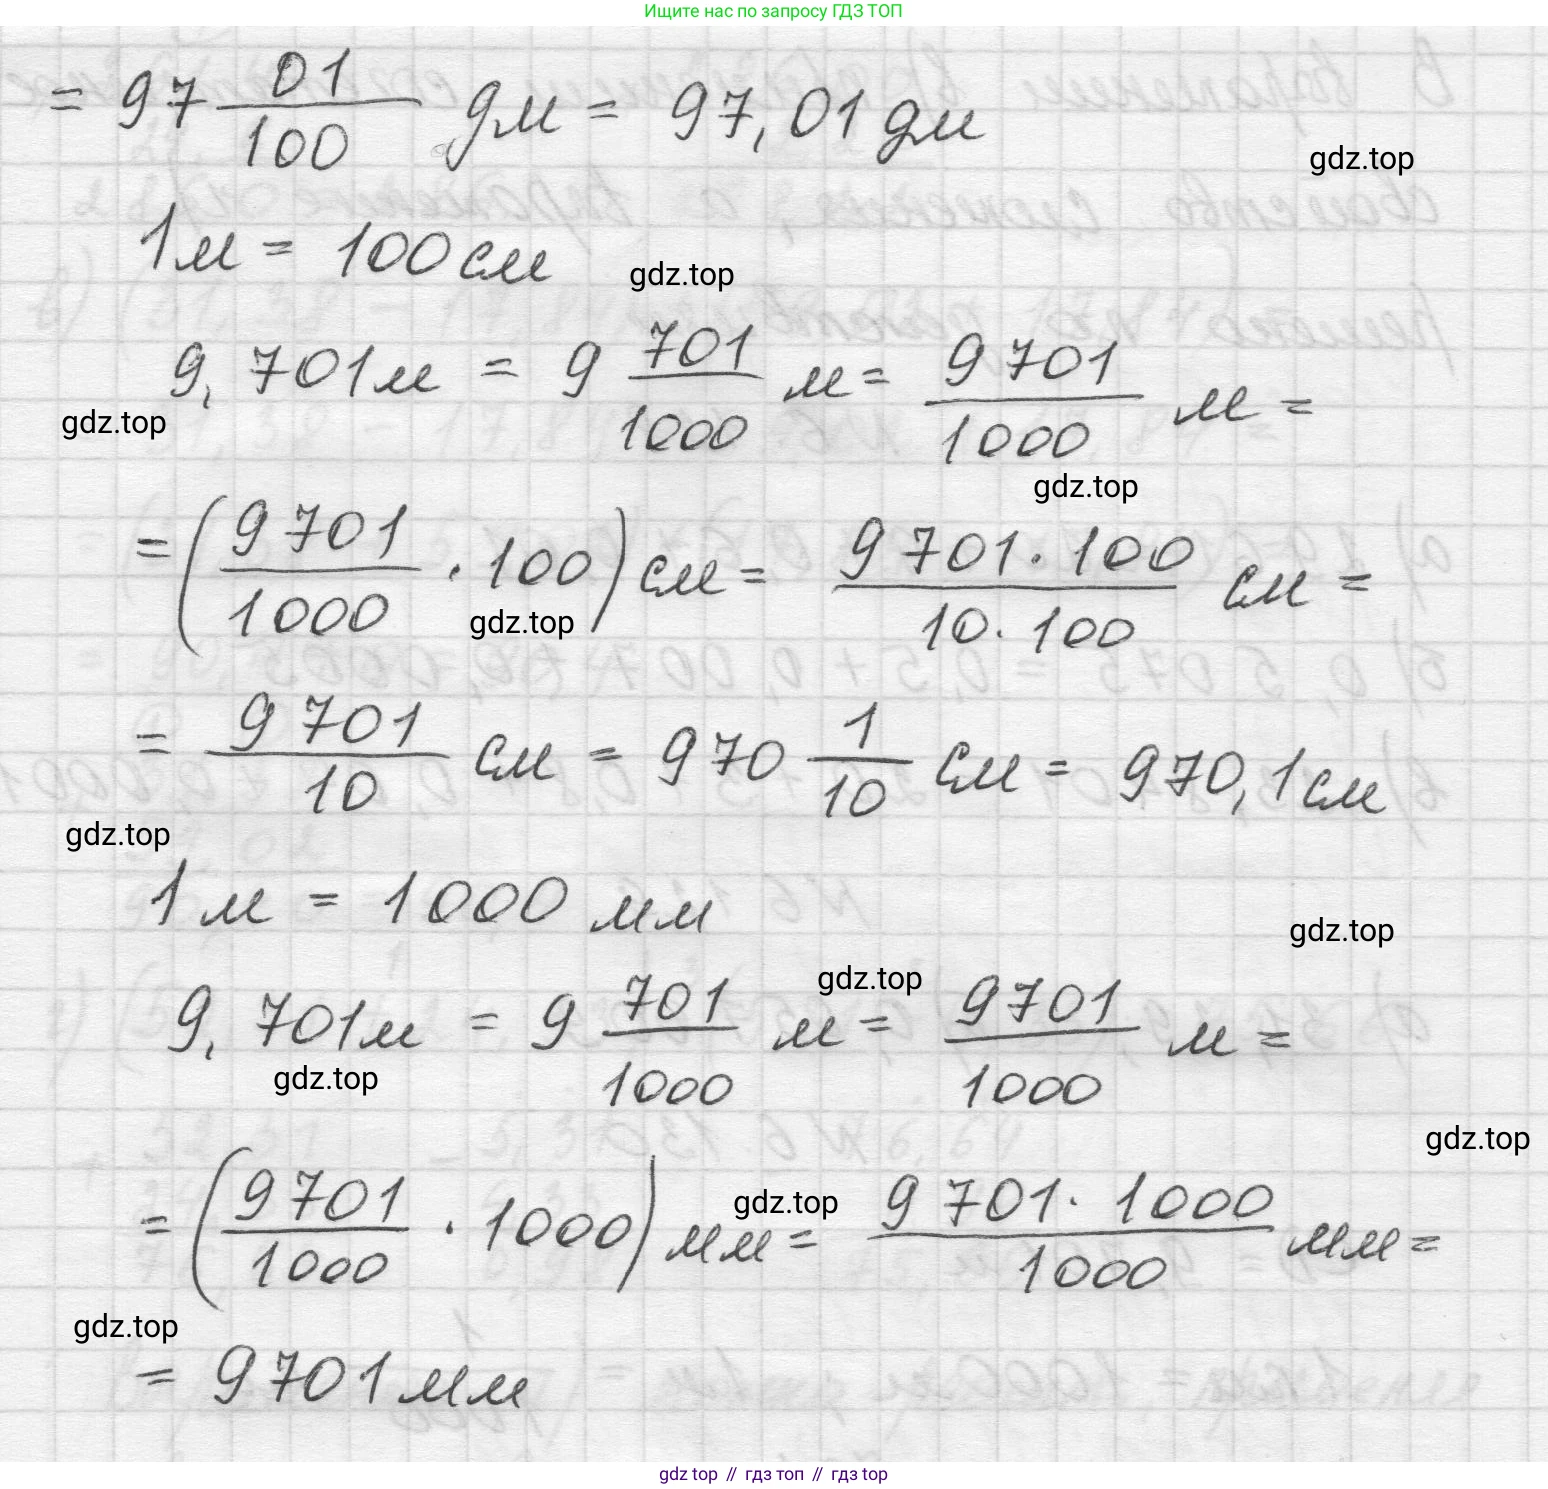 Ищите нас по запросу ГДЗ ТОП
= 97 01/100 дм = 97,01 дм
gdz.top
1 м = 100 см
gdz.top
9,701 м = 9 701/1000 м = 9701/1000 м =
gdz.top
gdz.top
= (9701/1000 · 100) см = 9701 · 100/10 · 100 см =
gdz.top
= 9701/10 см = 970 1/10 см = 970,1 см
gdz.top
1 м = 1000 мм
gdz.top
gdz.top
9,701 м = 9 701/1000 м = 9701/1000 м =
gdz.top
gdz.top
= (9701/1000 · 1000) мм = 9701 · 1000/1000 мм =
gdz.top
gdz.top
= 9701 мм
gdz top // гдз топ // gdz top